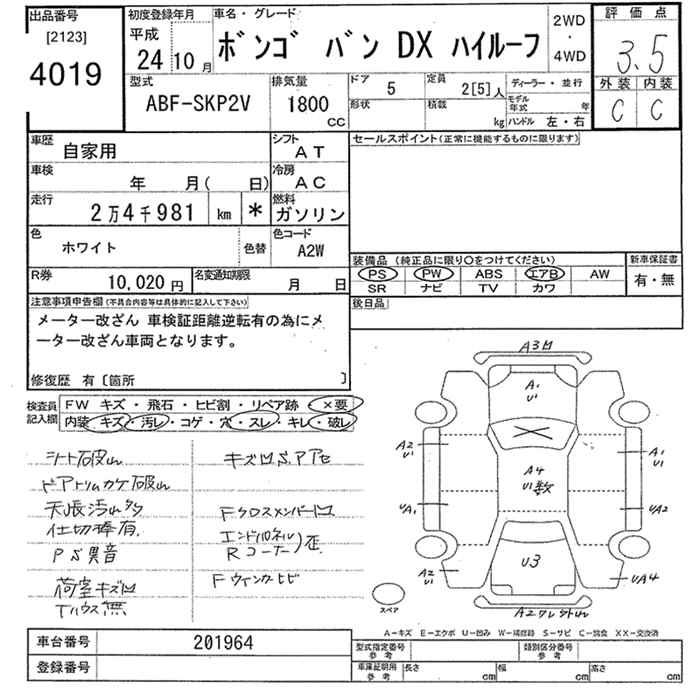 出品番号
[2123]
4019
初度登録年月
平成
24 10 月
車名・グレード
ボンゴ バン DX ハイルーフ
2WD
・
4WD
評価点
3.5
外装 内装
C C
型式
ABF-SKP2V
排気量
1800
CC
ドア
5
定員
2[5]人
ディーラー・並行
形状
積載
kg
モデル年式
年
ハンドル 左・右
車歴
自家用
シフト
AT
セールスポイント(正常に機能するものに限ります)
車検
年 月( 日)
冷房
AC
走行
2万4千981 km *
燃料
ガソリン
色
ホワイト
色替
色コード
A2W
装備品 (純正品に限り○をつけてください)
新車保証書
PS PW ABS エアB AW
有・無
SR ナビ TV カワ
R券
10,020 円
名変通知期限
月 日
後日品
注意事項申告欄 (不具合内容等は具体的に記入して下さい)
メーター改ざん 車検証距離逆転有の為にメ
ーター改ざん車両となります。
修復歴 有〔箇所 〕
検査員
記入欄
FW キズ・飛石・ヒビ割・リペア跡・×要
内装・キズ・汚レ・コゲ・穴・スレ・キレ・破レ
シート破れ
キズ凹S.アセ
ドアトリムカケ破れ
天張汚れ多
Fクロスメンバー凹
仕切棒有
エンドパネル
Rコーナー)歪
PS異音
荷室キズ凹
Fウィンカーヒビ
Tハウス無
A3凹
A1
U1
A4
U1数
A2
U1
A1
U1
UA1
UA2
U3
A2
U1
UA4
A2ワレ
スペア
A-キズ E-エクボ U-凹み W-補修跡 S-サビ C-腐食 XX-交換済
車台番号
201964
登録番号
型式指定番号
参考
類別区分番号
参考
車庫証明用
参考
長さ
cm
幅
cm
高さ
cm